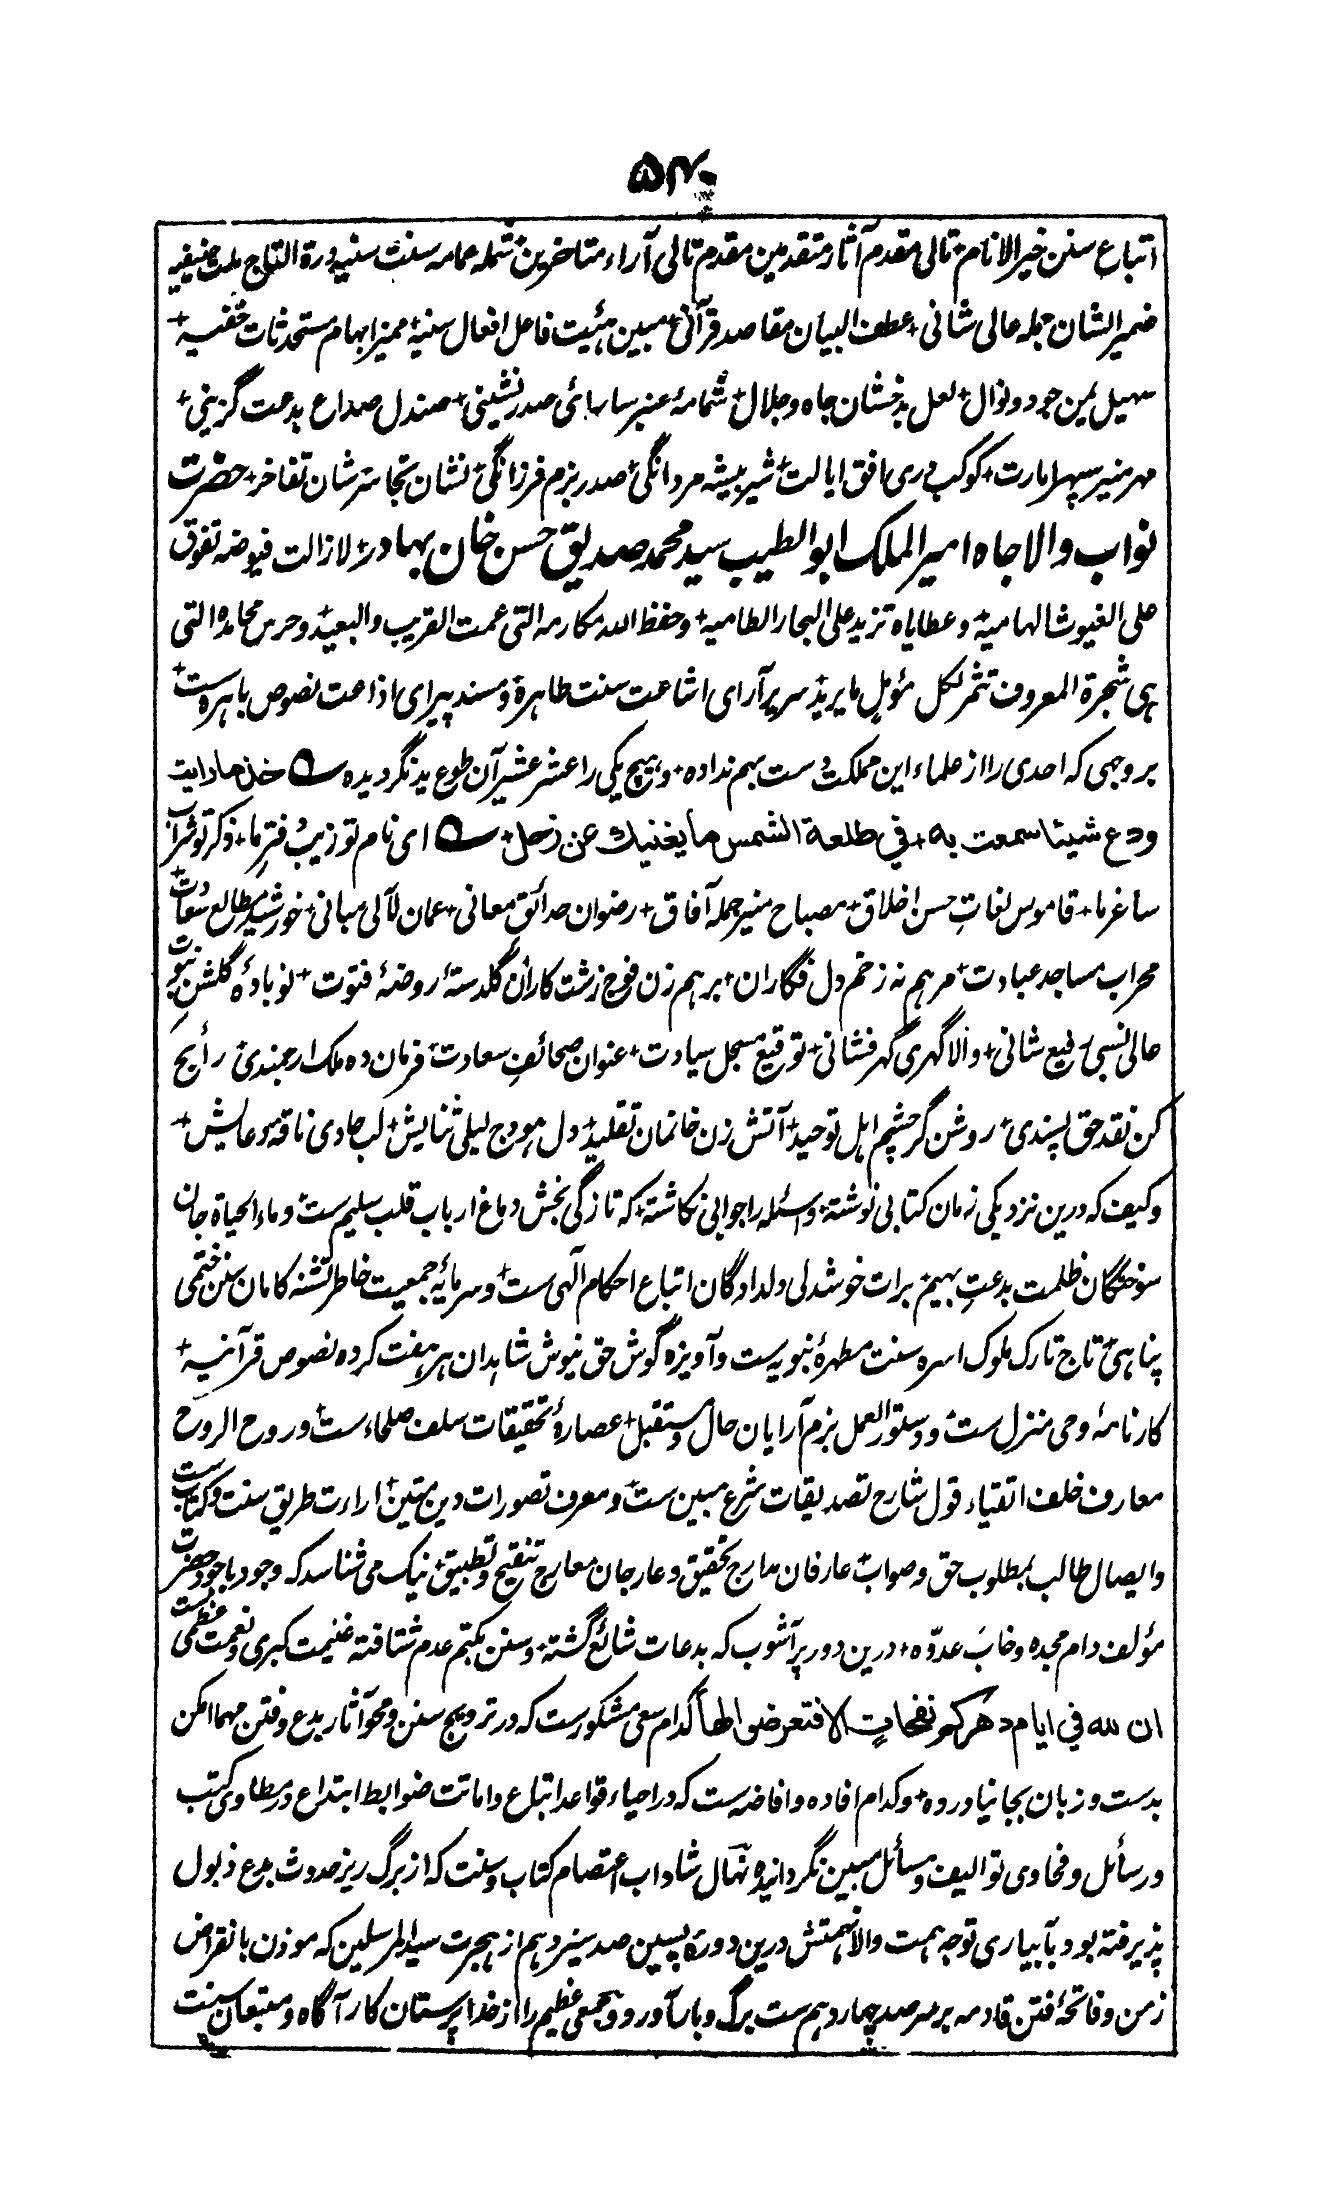 ۵۴۰
اتباع سنن خیر الانام + تالی مقدم آثار متقدمین مقدم تالی آراء متاخرین + شمله عمامه سنت سنیه درة التاج ملت حنیفیه
ضمیر الشان جمله عالی شانی + عطف البیان مقاصد قرآنی + مبین هئیت فاعل افعال سنیه + ممیز ابهام مستحدثات خفیه +
سهیل یمن جود و نوال + لعل بدخشان جاه و جلال + شمامۀ عنبر سارائی صدر نشینی + صندل صداع بدعت گزینی +
مهر منیر سپهر امارت + کوکب دری افق ایالت + شیر بیشه مردانگی + صدر بزم فرزانگی + نشان تفاخر + حضرت
نواب والا جاه امیر الملک ابو الطیب سید محمد صدیق حسن خان بهادر + لا زالت فیوضه تفوق
علی الغیوث الهامیه + و عطایاه تزید علی البحار الطامیه + و حفظ الله مکارمه التی عمت القریب والبعید + و حرس محامده التی
هی شجرة المعروف تثمر لکل مؤمل ما یرید + سریر آرای اشاعت سنت طاهره + و مسند پیرای اذاعت نصوص باهره ست +
بر وجهی که احدی را از علماء این مملکت دست بهم نداده + و هیچ یکی را عشر عشیر آن طوع ید نگردیده ؎ خذ ما رایت
ودع شیئا سمعت به + فی طلعة الشمس ما یغنیک عن زحل + ؎ ای نام تو زیب دفتر ما + ذکر تو شراب
ساغر ما + قاموس لغات حسن اخلاق + مصباح منیر جمله آفاق + رضوان حدائق معانی + عمان لآلی مبانی + خورشید مطالع سعادت +
محراب مساجد عبادت + مرهم نه زخم دل فگاران + برهم زن فوج زشت کاران + گلدستۀ روضۀ فتوت + نو بادۀ گلشن نبوت
عالی نسبی رفیع شانی + والا گهری گهر فشانی + توقیع مسجل سیادت + عنوان صحائف سعادت + فرمان ده ملک ارجمندی + رایج
کن نقد حق پسندی + روشن گر چشم اهل توحید + آتش زن خانمان تقلید + دل هودج لیلی ثنایش + لب حادی ناقه دعایش +
وکیف که درین نزدیکی زمان کتابی نوشته + و اسئله را جوابی نگاشته + که تازگی بخش دماغ ارباب قلب سلیم ست + و ماء الحیاة جان
سوختگان ظلمت بدعت بهیم + برات خوشدلی ولدادگان اتباع احکام آلهی ست + و سرمایۀ جمعیت خاطر تشنه کامان سنن ختمی
پناهی + تاج تارک ملوک اسره سنت مطهرۀ نبویه ست و آویزه گوش حق نیوش شاهدان هر هفت کرده نصوص قرآنیه +
کارنامۀ وحی منزل ست + و دستور العمل بزم آرایان حال و مستقبل + عصارۀ تحقیقات سلف صلحاء ست + و روح الروح
معارف خلف اتقیاء قول شارح تصدیقات شرع مبین ست + و معرف تصورات دین متین + اراءت طریق سنت و کتاب ست
و ایصال طالب بمطلوب حق و صواب + عارفان مدارج تحقیق و عارجان معارج تنقیح و تطبیق + نیک می شناسد که وجود باجود حضرت
مؤلف دام مجده و خاب عدوّه + درین دور پر آشوب که بدعات شائع گشته + و سنن بکتم عدم شتافته غنیمت کبری و نعمت عظمی ست
ان لله فی ایام دهرکم نفحات الا فتعرضوا لها + کدام سعی مشکورست که در ترویج سنن و محو آثار بدع و فتن مهما امکن
بدست و زبان بجا نیاورده + و کدام افاده و افاضه ست که در احیاء قواعد اتباع و اماتت ضوابط ابتداع در مطاوی کتب
و رسائل و فحاوی توالیف و مسائل مبین نگردانیده + نهال شاداب اعتصام کتاب و سنت که از برگ ریز حدوث بدع ذبول
پذیرفته بود بآبیاری توجه همت والا نهمتش درین دورۀ پسین صد سیزدهم از هجرت سید المرسلین که موذن بانقراض
زمن و فاتحۀ فتن قادمه بر سر صد چهاردهم ست برگ و بار آورد و جمعی عظیم را از خدا پرستان کار آگاه و متبعان سنت